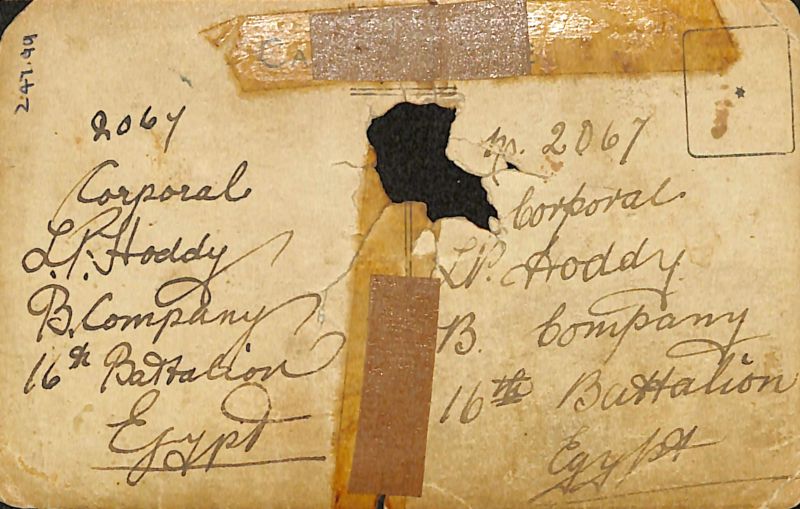 247.99
2067
Corporal
L.P. Hoddy
B. Company
16th Battalion
Egypt
2067
Corporal
L.P. Hoddy
B. Company
16th Battalion
Egypt